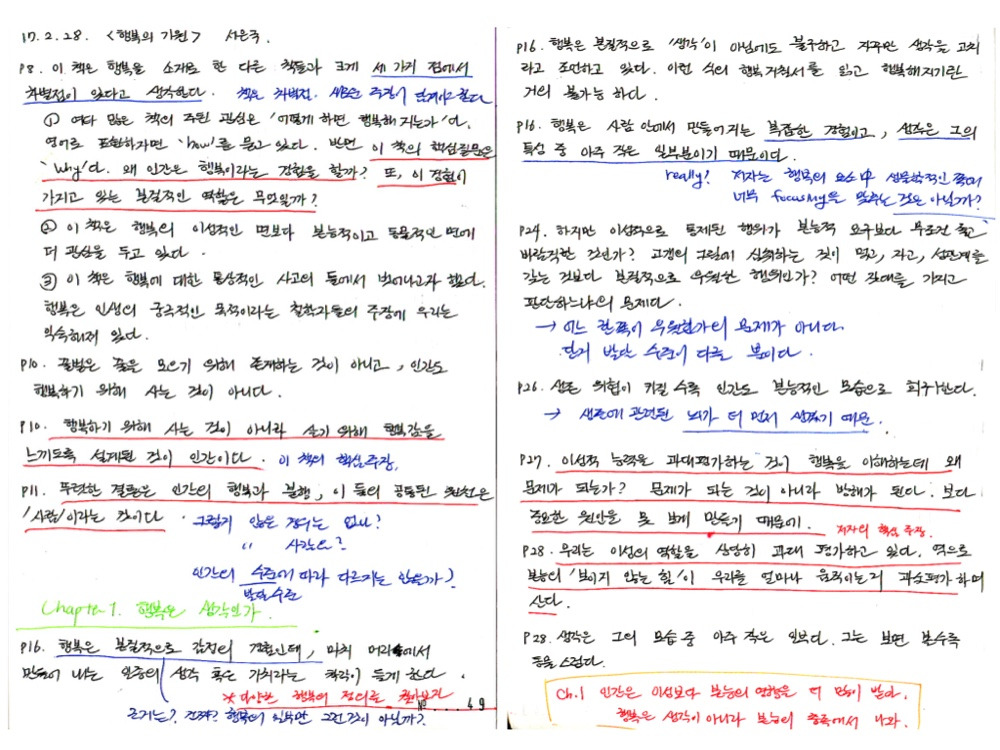 17.2.28. <행복의 기원> 서은국.
P8. 이 책은 행복을 소재로 한 다른 책들과 크게 세 가지 점에서
차별점이 있다고 생각한다. 책은 차별점. 새로운 주장이 담겨야 한다
① 여타 많은 책의 주된 관심은 '어떻게 하면 행복해지는가'다.
영어로 표현하자면 'how'를 묻고 있다. 반면 이 책의 핵심질문은
'why'다. 왜 인간은 행복이라는 경험을 할까? 또, 이 경험이
가지고 있는 본질적인 역할은 무엇일까?
② 이 책은 행복의 이성적인 면보다 본능적이고 동물적인 면에
더 관심을 두고 있다.
③ 이 책은 행복에 대한 통상적인 사고의 틀에서 벗어나고자 했다.
행복은 인생의 궁극적인 목적이라는 철학자들의 주장에 우리는
익숙해져 있다.
P10. 꿀벌은 꿀을 모으기 위해 존재하는 것이 아니고, 인간도
행복하기 위해 사는 것이 아니다.
P10. 행복하기 위해 사는 것이 아니라 살기 위해 행복감을
느끼도록 설계된 것이 인간이다. 이 책의 핵심주장.
P11. 뚜렷한 결론은 인간의 행복과 불행, 이 둘의 공통된 원천은
'사람'이라는 것이다. 그렇지 않은 경우는 없나?
" 사람은?
인간의 수준에 따라 다르지는 않을까?
발달수준
Chapter 1. 행복은 생각인가
P16. 행복은 본질적으로 감정의 경험인데, 마치 머리에서
만들어 내는 일종의 생각 혹은 가치라는 착각이 들게 한다.
*다양한 행복의 정의를 찾아보자
근거는? 행복의 일부만 그런것이 아닐까?
№ 49
P16. 행복은 본질적으로 '생각'이 아님에도 불구하고 자꾸만 생각을 고치
라고 조언하고 있다. 이런 식의 행복지침서를 읽고 행복해지기란
거의 불가능 하다.
P16. 행복은 사람 안에서 만들어지는 복잡한 경험이고, 생각은 그의
특성 중 아주 작은 일부분이기 때문이다.
really? 저자는 행복의 요소中 생물학적인 쪽에
너무 focusing을 맞추는 것은 아닐까?
P24. 하지만 이성적으로 통제된 행위가 본능적 욕구보다 무조건 옳고
바람직한 것인가? 고갱의 그림에 심취하는 것이 먹고, 자고, 성관계를
갖는 것보다 본질적으로 우월한 행위인가? 어떤 잣대를 가지고
판단하느냐의 문제다.
→ 어느 한쪽이 우월한가의 문제가 아니다.
단지 발달 수준이 다를 뿐이다.
P26. 생존 위협이 커질 수록 인간도 본능적인 모습으로 회귀한다.
→ 생존에 관련된 뇌가 더 먼저 생겼기 때문.
P27. 이성적 능력을 과대평가하는 것이 행복을 이해하는데 왜
문제가 되는가? 문제가 되는 것이 아니라 방해가 된다. 보다
중요한 원인을 못 보게 만들기 때문에. 저자의 핵심 주장.
P28. 우리는 이성의 역할을 상당히 과대 평가하고 있다. 역으로
본능의 '보이지 않는 힘'이 우리를 얼마나 움직이는지 과소평가하며
산다.
P28. 생각은 그의 모습 중 아주 작은 일부다. 그는 보면 볼수록
동물스럽다.
Ch.1 인간은 이성보다 본능의 영향을 더 많이 받아.
행복은 생각이 아니라 본능의 충족에서 나와.